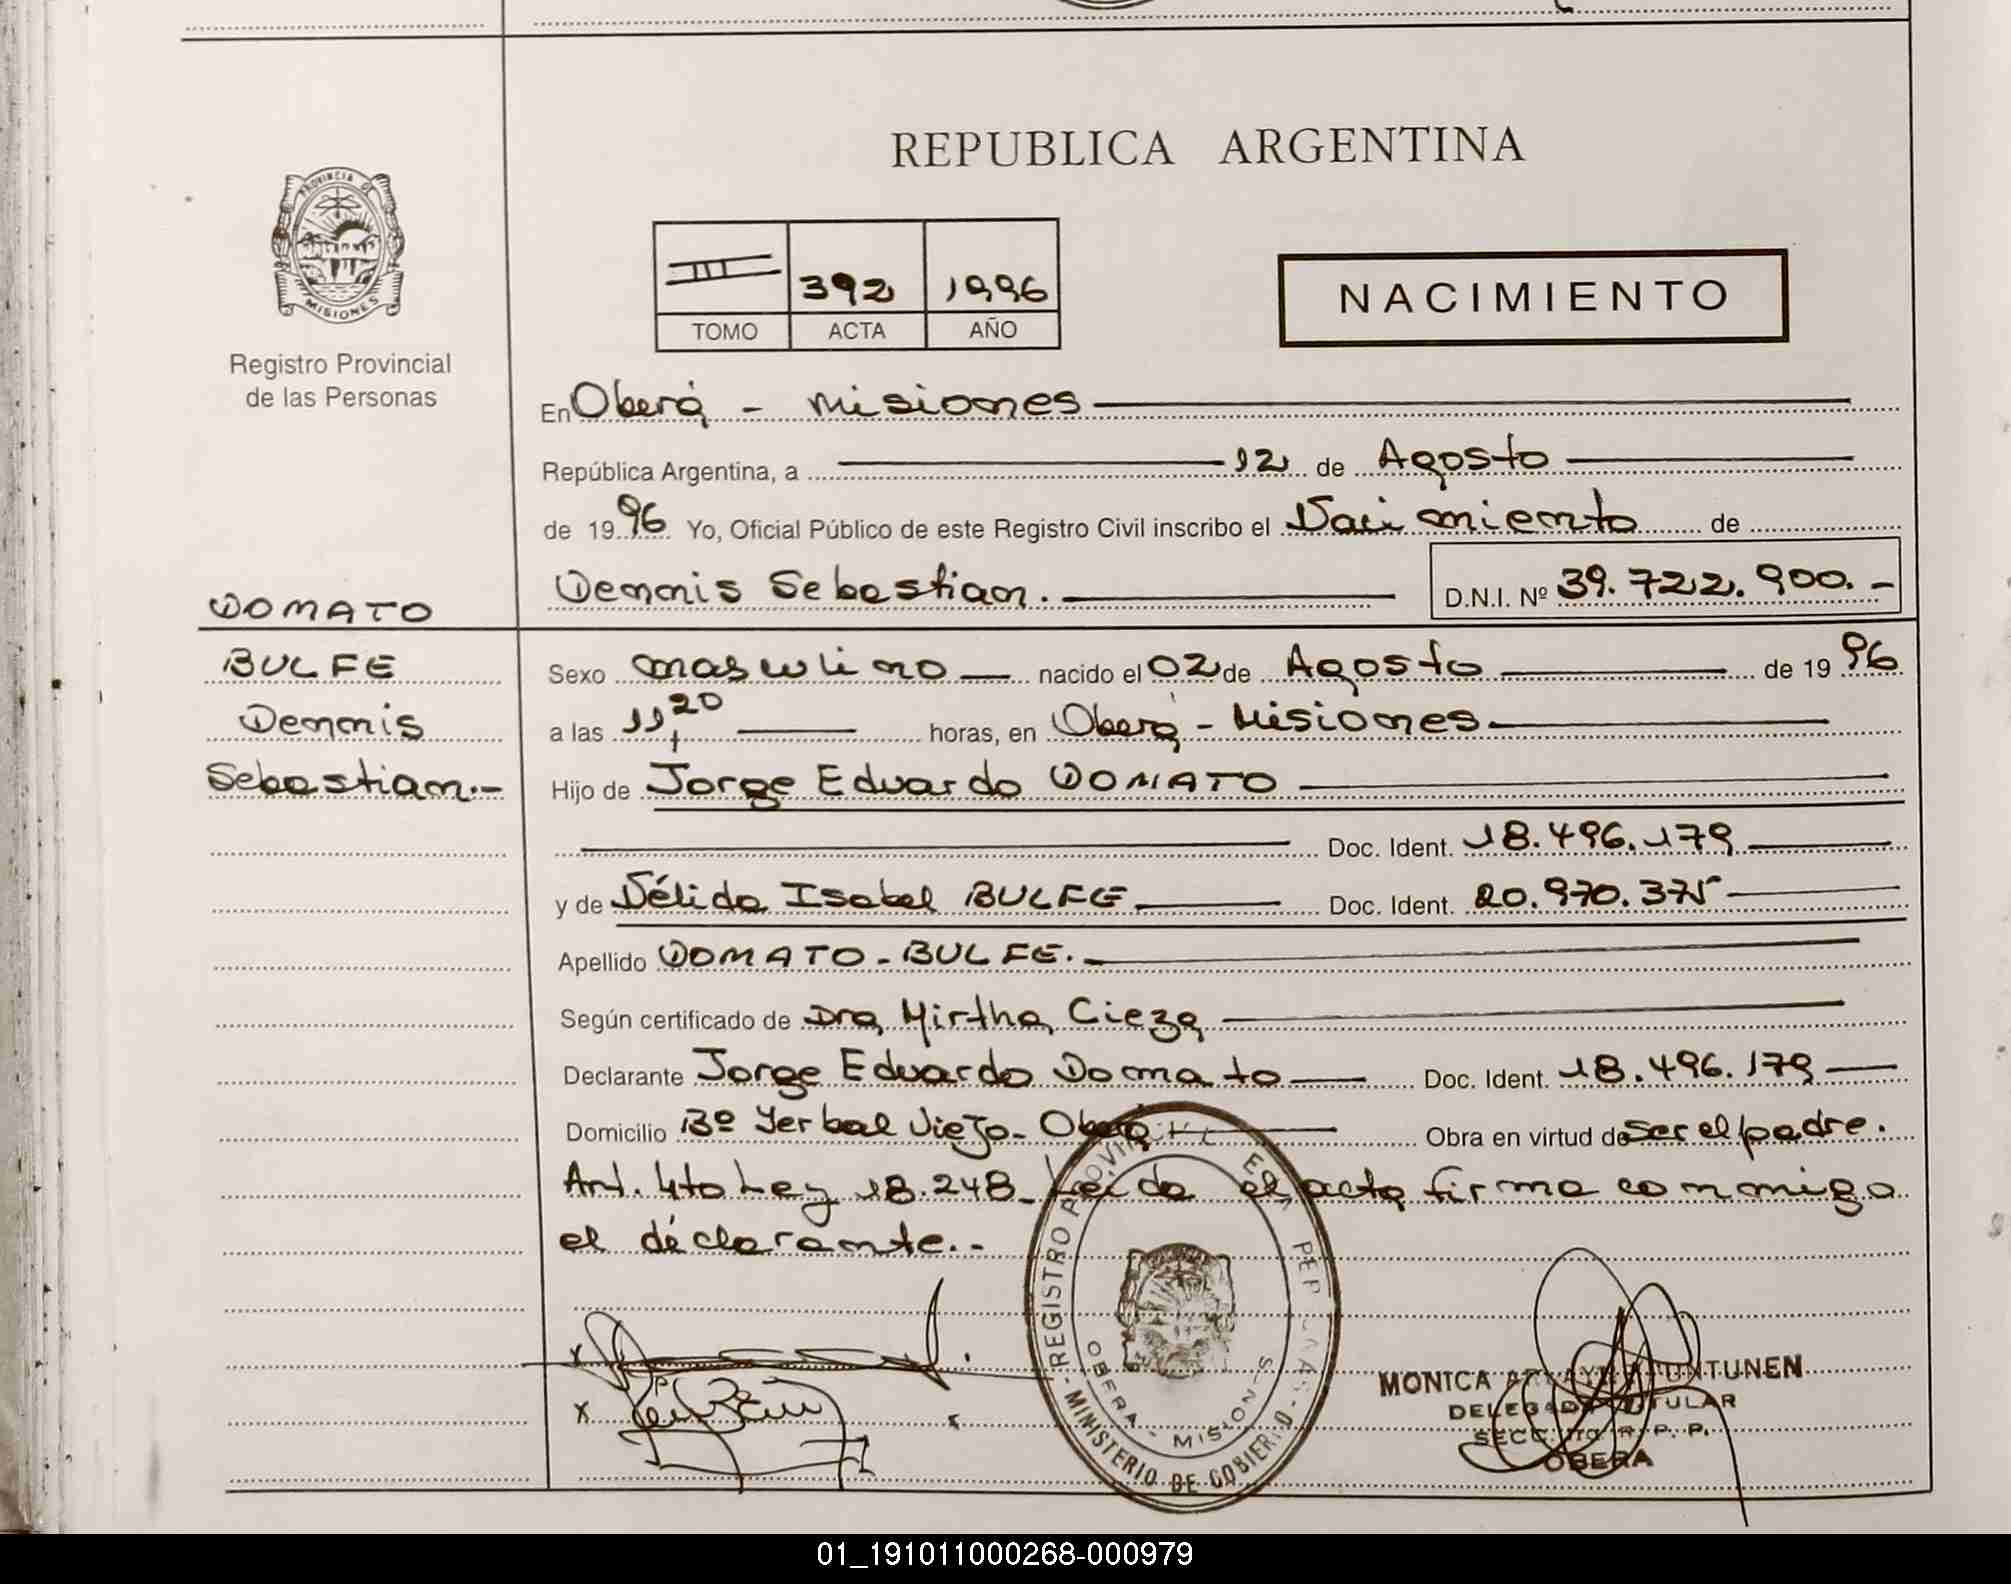 REPUBLICA ARGENTINA
PROVINCIA DE MISIONES
Registro Provincial
de las Personas
392 1996
TOMO ACTA AÑO
NACIMIENTO
En Oberá - Misiones
República Argentina, a 12 de Agosto
de 1996 Yo, Oficial Público de este Registro Civil inscribo el Nacimiento de
Dennis Sebastian. D.N.I. Nº 39.722.900.-
DONATO
BULFE
Dennis
Sebastian.-
Sexo masculino nacido el 02 de Agosto de 1996
a las 11,20 horas, en Oberá - Misiones
Hijo de Jorge Eduardo DONATO
Doc. Ident. 18.496.179
y de Nélida Isabel BULFE Doc. Ident. 20.970.375
Apellido DONATO - BULFE.
Según certificado de Dra Mirtha Cieza
Declarante Jorge Eduardo Donato Doc. Ident. 18.496.179
Domicilio Bº Yerbal Viejo - Oberá Obra en virtud de ser el padre.
Art. 4to Ley 18.248 - Leída el acta firma conmigo
el déclarante.-
REGISTRO PROVINCIAL
MINISTERIO DE GOBIERNO
OBERA - MISIONES
MONICA
DELEGADA TITULAR
SECC. 1ra R. P. P.
OBERA
01_191011000268-000979